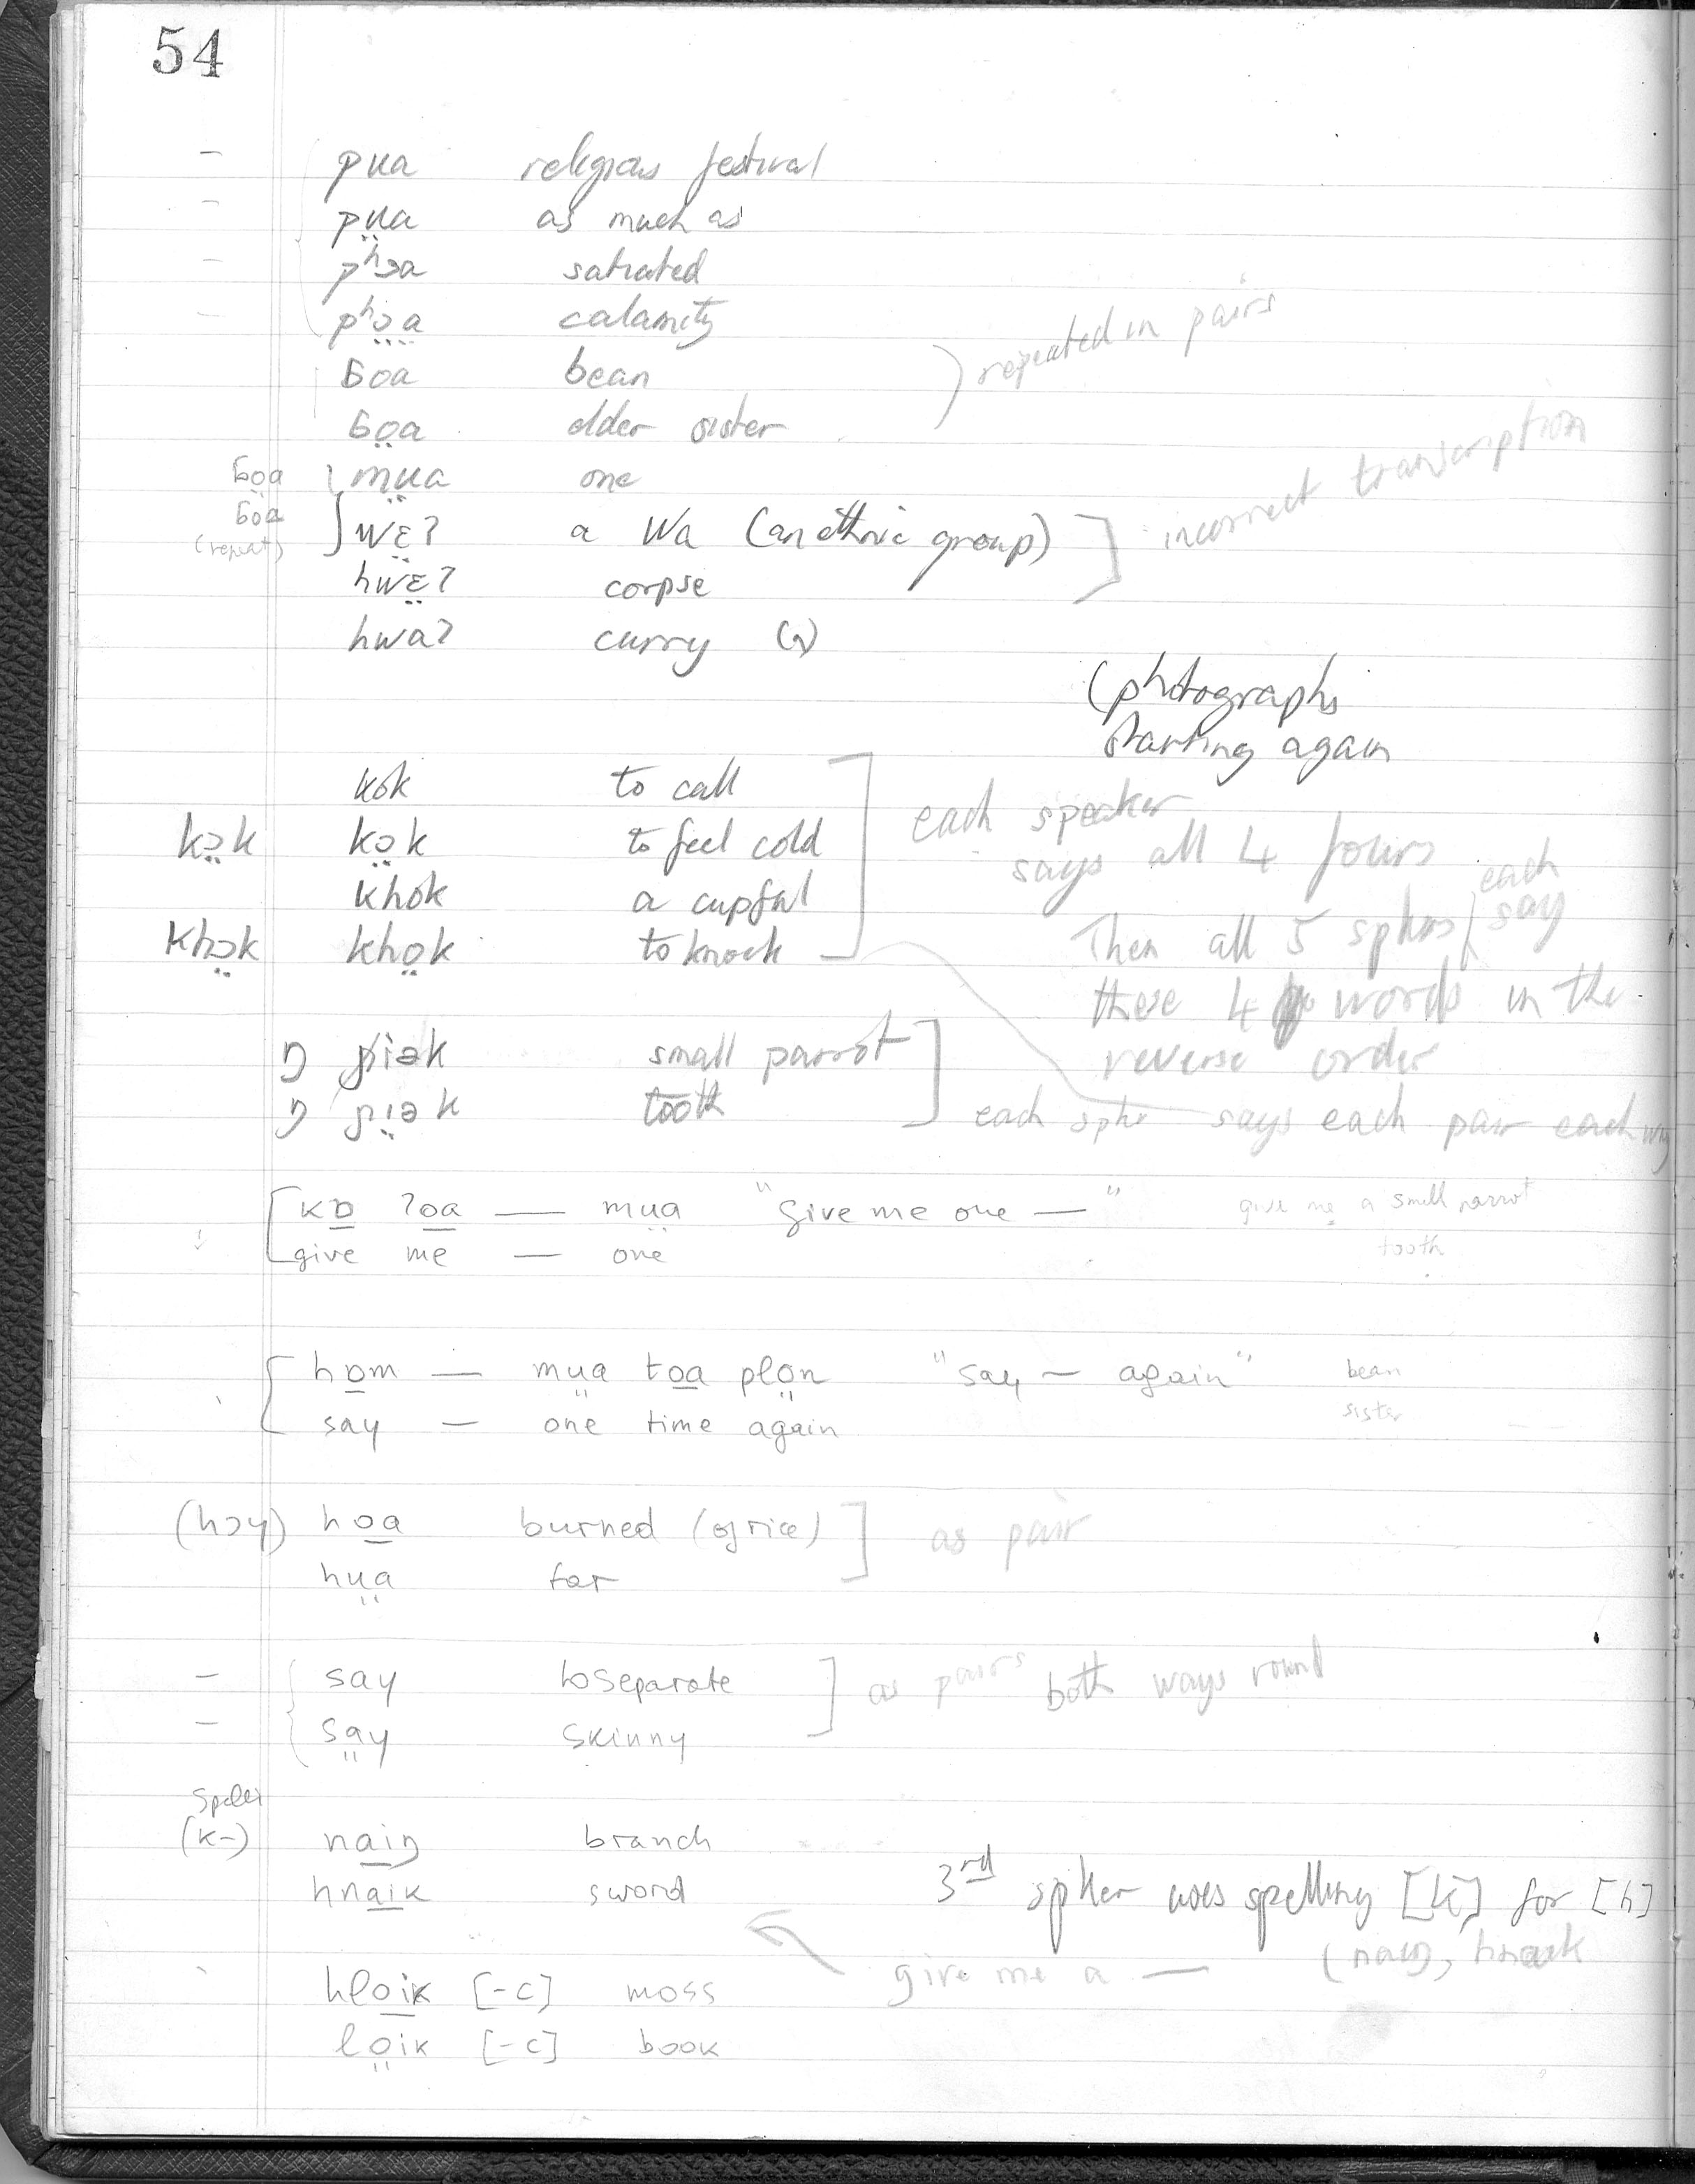 54
– pua religious festival
– pṳa as much as
– pʰɔa satiated
– pʰɔ̤a̤ calamity
ɓoa bean
ɓo̤a elder sister ) repeated in pairs
ɓo̤a mṳa one
ɓo̤a wɛ̤ʔ a Wa (an ethnic group) ] incorrect transcription
(repeat)
hwɛ̤ʔ corpse
hwaʔ curry
(photographs
starting again
kok to call
kɔ̤k kɔ̤k to feel cold each speaker
khok a cupful says all 4 fours
khɔ̤k kho̤k to knock Then all 5 spkrs / each say
these 4 words in the
reverse order
ŋ ɲiək small parrot
ŋ ɲi̤ək tooth each spkr says each pair each way
kɒ̱ ʔo̱a̱ — mṳa "give me one —" give me a small parrot
give me — one tooth
ho̱m — mṳa to̱a̱ plo̤n "say — again" bean
say — one time again sister
(hɔy) ho̱a burned (of rice) ] as pair
hṳa̤ far
– say to separate ] as pairs both ways round
– sa̤y skinny
Spell
(k-) na̱i̱ŋ branch
hna̱i̱k sword 3rd spker uses spelling [k] for [h]
give me a —
hlo̱i̱k [-c] moss
lo̤ik [-c] book